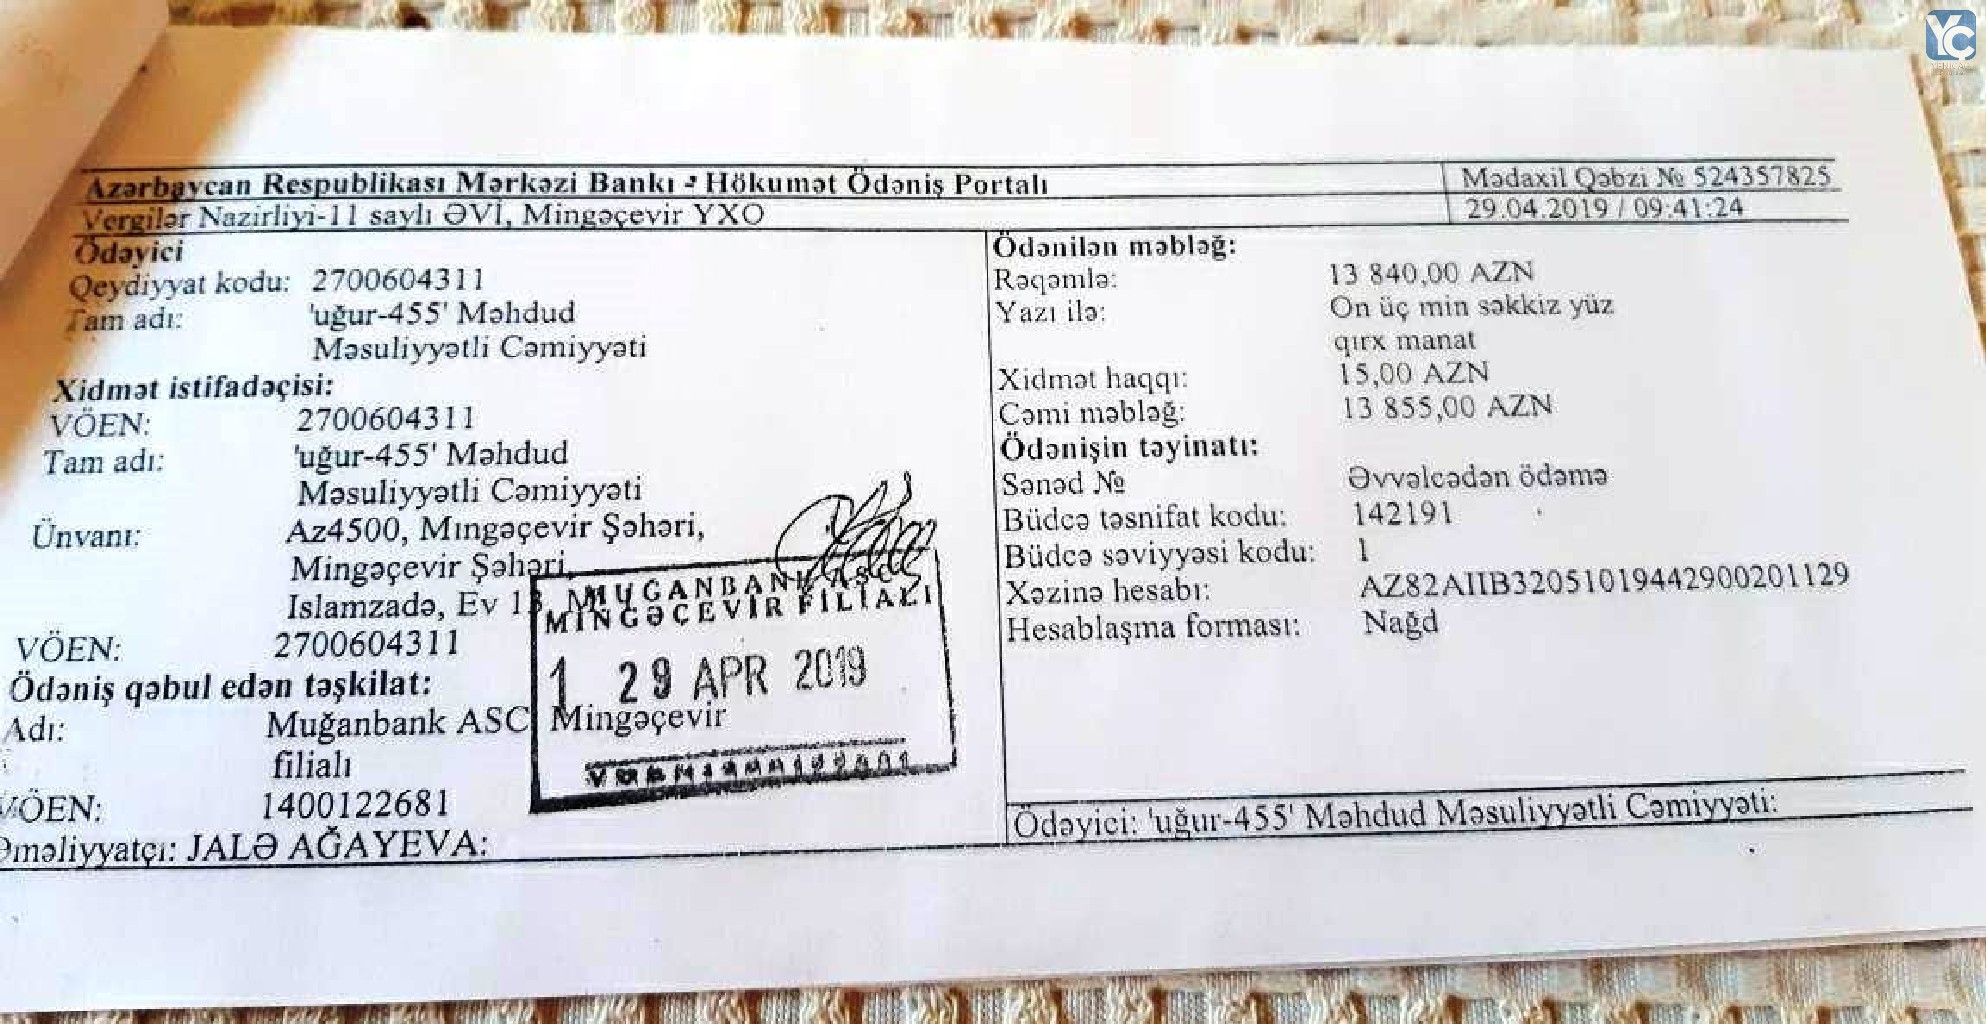 YÇ
Azərbaycan Respublikası Mərkəzi Bankı - Hökumət Ödəniş Portalı
Mədaxil Qəbzi № 524357825
Vergilər Nazirliyi-11 saylı ƏVİ, Mingəçevir YXO
29.04.2019 / 09:41:24
Ödəyici
Qeydiyyat kodu: 2700604311
Tam adı: 'uğur-455' Məhdud
Məsuliyyətli Cəmiyyəti
Xidmət istifadəçisi:
VÖEN: 2700604311
Tam adı: 'uğur-455' Məhdud
Məsuliyyətli Cəmiyyəti
Ünvanı: Az4500, Mıngəçevir Şəhəri,
Mingəçevir Şəhəri,
Islamzadə, Ev
VÖEN: 2700604311
Ödəniş qəbul edən təşkilat:
Adı: Muğanbank ASC Mingəçevir
filialı
VÖEN: 1400122681
Əməliyyatçı: JALƏ AĞAYEVA:
MUĞANBANK ASC
MİNGƏÇEVİR FİLİALI
1 29 APR 2019
Ödənilən məbləğ:
Rəqəmlə: 13 840,00 AZN
Yazı ilə: On üç min səkkiz yüz
qırx manat
Xidmət haqqı: 15,00 AZN
Cəmi məbləğ: 13 855,00 AZN
Ödənişin təyinatı:
Sənəd № Əvvəlcədən ödəmə
Büdcə təsnifat kodu: 142191
Büdcə səviyyəsi kodu: 1
Xəzinə hesabı: AZ82AIIB32051019442900201129
Hesablaşma forması: Nağd
Ödəyici: 'uğur-455' Məhdud Məsuliyyətli Cəmiyyəti: